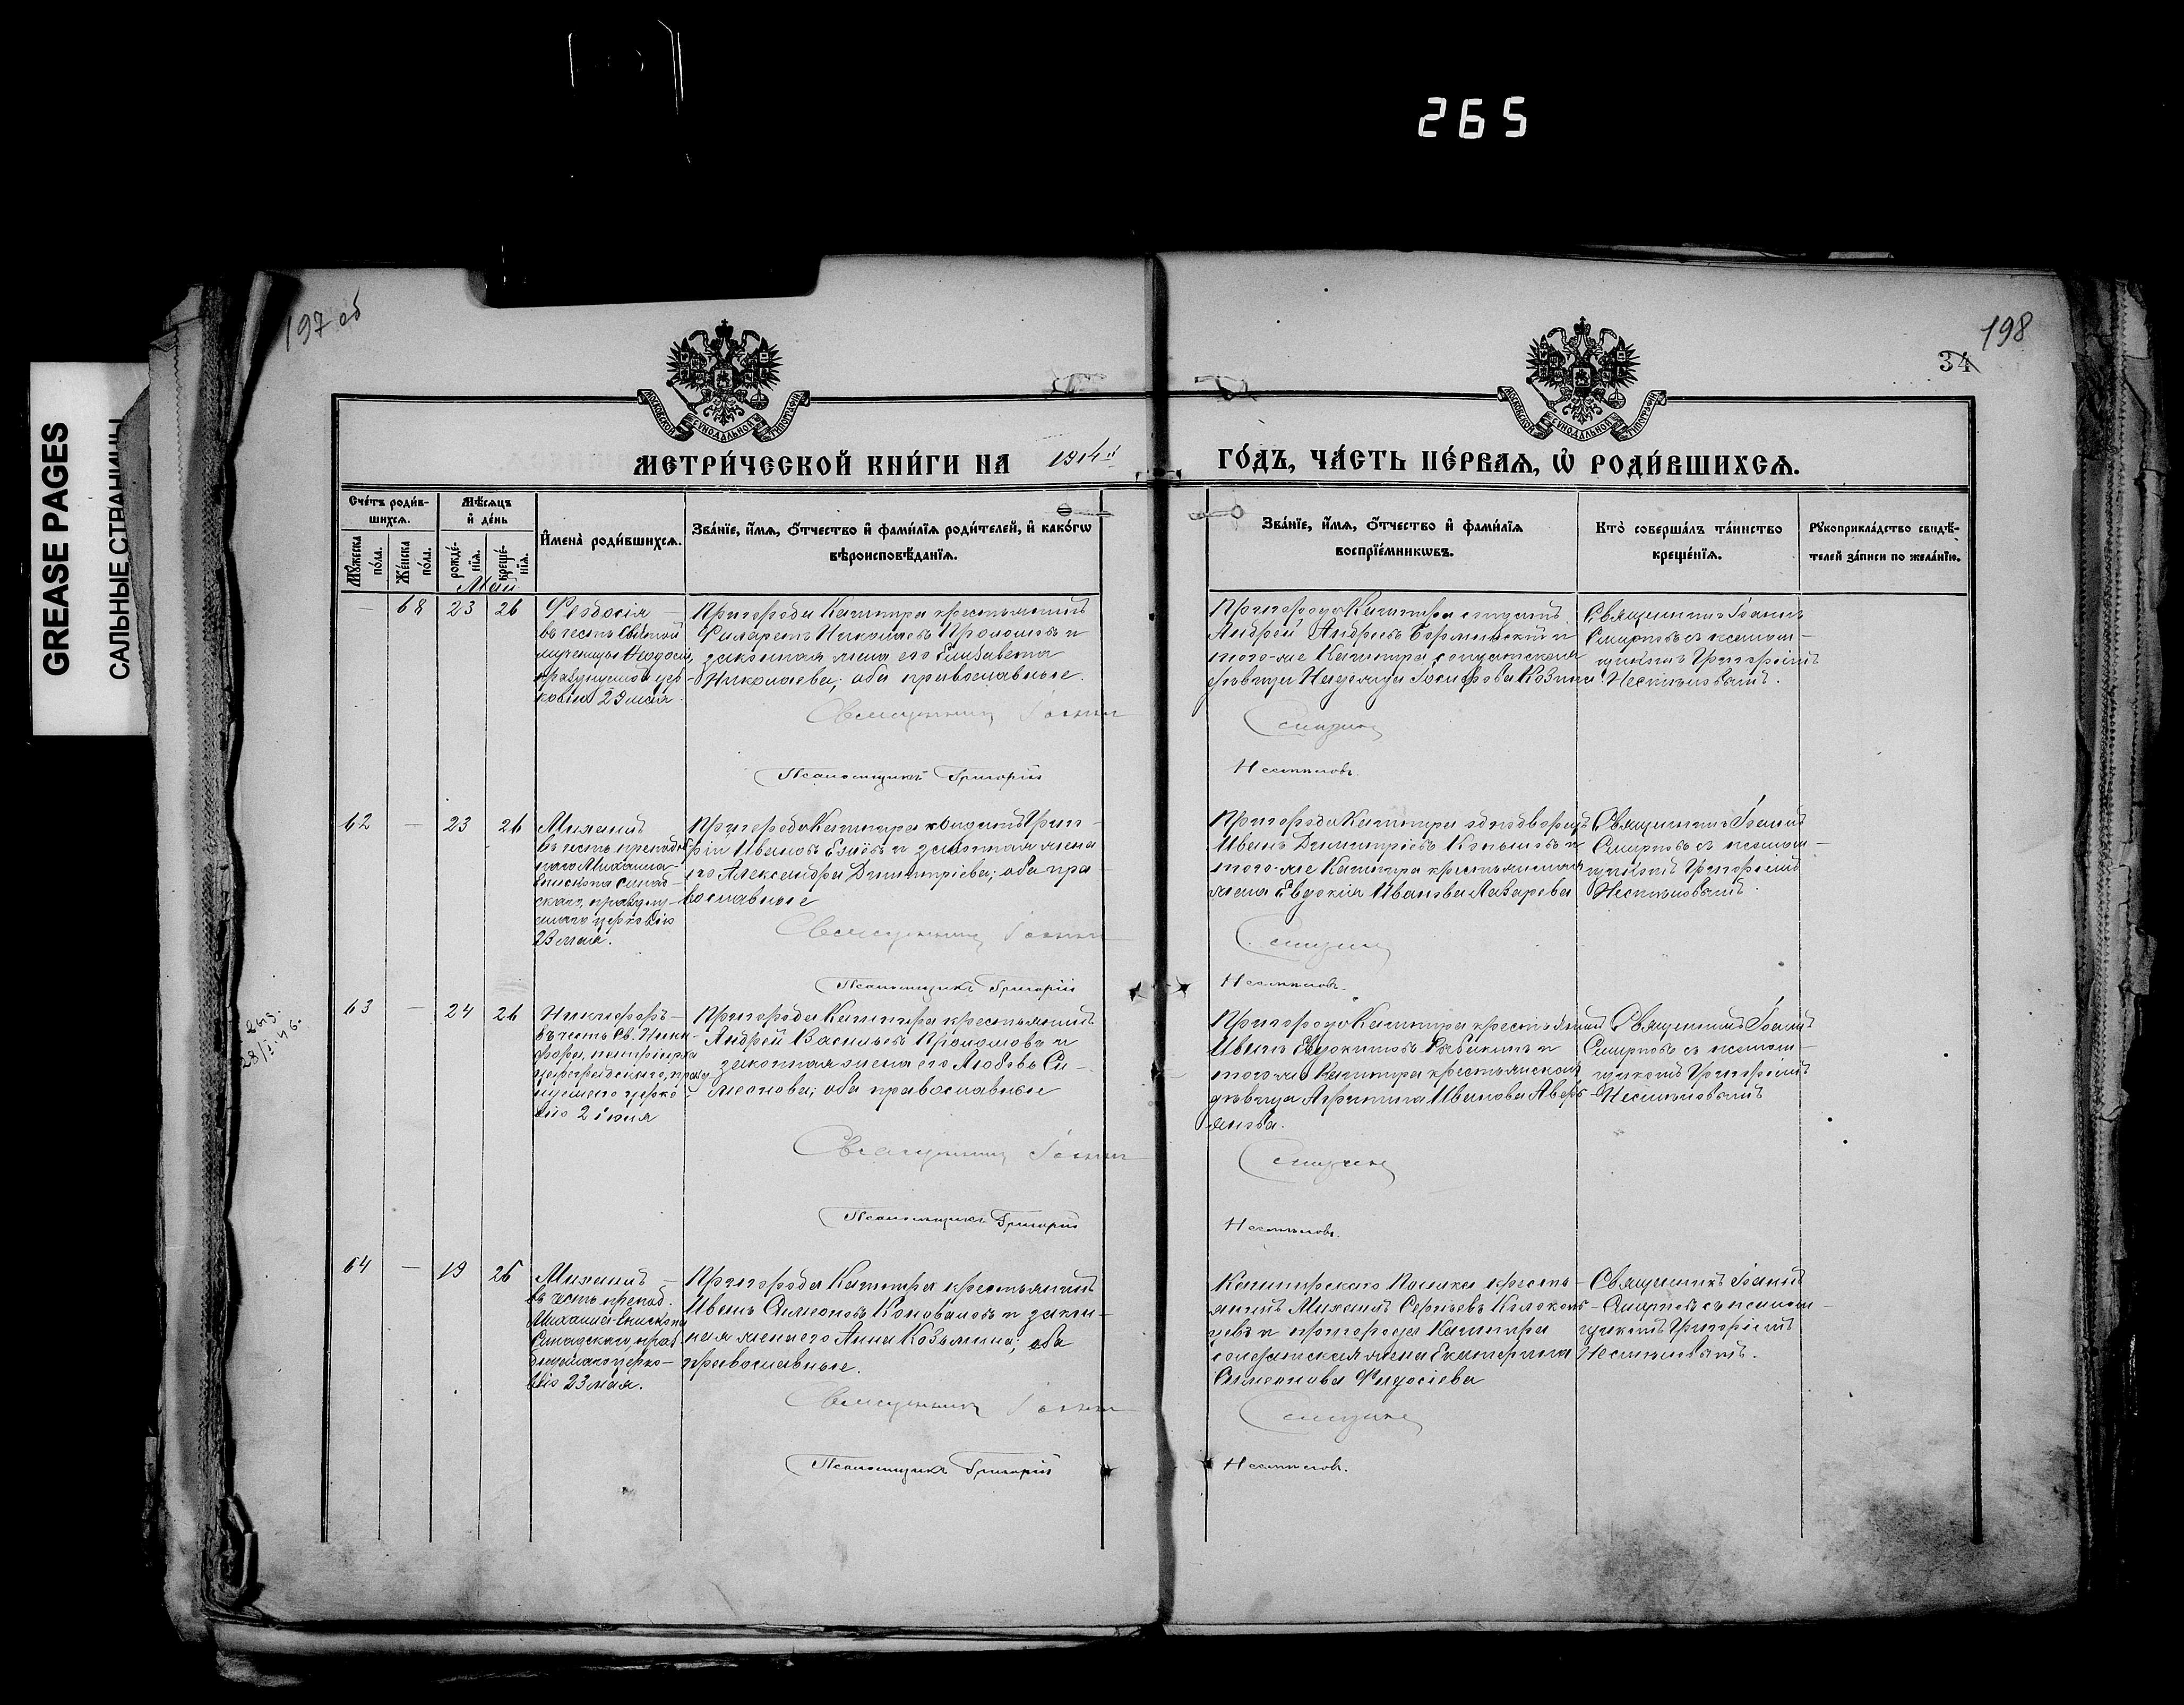 265
GREASE PAGES
САЛЬНЫЕ СТРАНИЦЫ
197 об
198
34
МОСКОВСКОЙ СѴНОДАЛЬНОЙ ТИПОГРАФІИ
МОСКОВСКОЙ СѴНОДАЛЬНОЙ ТИПОГРАФІИ
МЕТРИ́ЧЕСКОЙ КНИ́ГИ НА 1914й ГО́ДЪ, ЧА́СТЬ ПЕ́РВАЯ, Ѡ РОДИ́ВШИХСЯ.
Сче́тъ роди́в-
шихся.
Му́жеска по́ла.
Же́нска по́ла.
Мѣ́сяцъ
и де́нь
рожде́-
нія.
креще́-
нія.
Май
Имена̀ роди́вшихся.
Зва́нїе, и́мя, о́тчество и фами́лїя роди́телей, и како́гѡ
вѣроисповѣ́данїя.
Зва́нїе, и́мя, о́тчество и фами́лїя
воспрїе́мникѡвъ.
Кто̀ соверша́лъ та́инство
креще́нїя.
Рукоприкла́дство свидѣ́-
телей за́писи по жела́нїю.
— 68 23 26
Феодосія —
въ честь святой
мученицы Феодосіи,
празднуемой цер-
ковію 29 мая.
Пригорода Кашпира крестьянинъ
Филаретъ Николаевъ Прохоловъ и
законная жена его Елизавета
Николаева; оба православные.
Священникъ Іоаннъ
Псаломщикъ Григорій
Пригорода Кашпира солдатъ
Андрей Андреевъ и
того-же Кашпира солдатская
дѣвица Надежда Іосифова Козина
Смирновъ
Несмѣловъ.
Священникъ Іоаннъ
Смирновъ съ псалом-
щикомъ Григоріемъ
Несмѣловымъ.
62 — 23 26
Михаилъ
въ честь преподоб
наго Михаила
епископа Синад-
скаго, праздну-
емаго церковію
23 мая.
Пригорода Кашпира солдатъ Григо-
рій Ивановъ и законная жена
его Александра Димитріева; оба пра-
вославные
Священникъ Іоаннъ
Псаломщикъ Григорій
Пригорода Кашпира однодворецъ
Иванъ Димитріевъ Копыловъ и
того-же Кашпира крестьянская
жена Евдокія Иванова Лазарева
Смирновъ
Несмѣловъ.
Священникъ Іоаннъ
Смирновъ съ псалом-
щикомъ Григоріемъ
Несмѣловымъ.
28/I-46.
63 — 24 26
Никифоръ —
въ честь св. Ники-
фора, патріарха
цареградскаго, празд
нуемаго церко-
вію 2 іюня
Пригорода Кашпира крестьянинъ
Андрей Васильевъ Прохоловъ и
законная жена его Любовь Си-
меонова; оба православные
Священникъ Іоаннъ
Псаломщикъ Григорій
Пригорода Кашпира крестьянинъ
Иванъ Евдокимовъ Рябикинъ и
того-же Кашпира крестьянская
дѣвица Агрипина Иванова Аверь-
янова.
Смирновъ
Несмѣловъ.
Священникъ Іоаннъ
Смирновъ съ псалом-
щикомъ Григоріемъ
Несмѣловымъ
64 — 19 26
Михаилъ —
въ честь препод.
Михаила епископа
Синадскаго, праз-
днуемаго церко-
вію 23 мая.
Пригорода Кашпира крестьянинъ
Иванъ Симеоновъ Коноваловъ и закон-
ная жена его Анна Козьмина; оба
православные.
Священникъ Іоаннъ
Псаломщикъ Григорій
Кашпирскаго крестья-
янинъ Михаилъ Сергѣевъ Колоколь-
цевъ и пригорода Кашпира
солдатская жена Екатерина
Симеонова Федосіева
Смирновъ
Несмѣловъ.
Священникъ Іоаннъ
Смирновъ съ псалом-
щикомъ Григоріемъ
Несмѣловымъ.